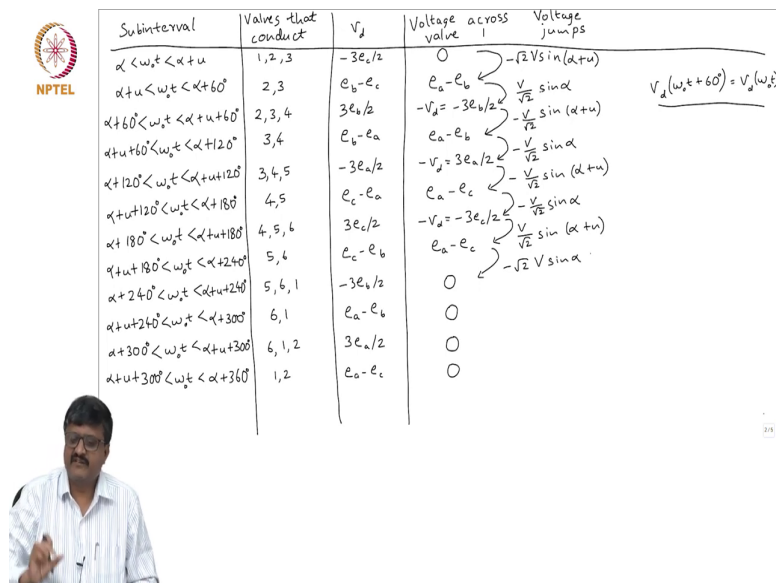 Subinterval | Valves that conduct | V_d | Voltage across valve 1 | Voltage jumps
α < ω₀t < α+u | 1, 2, 3 | -3e_c/2 | 0
-√2 V sin(α+u)
α+u < ω₀t < α+60° | 2, 3 | e_b - e_c | e_a - e_b
V/√2 sin α
V_d(ω₀t + 60°) = V_d(ω₀t)
α+60° < ω₀t < α+u+60° | 2, 3, 4 | 3e_b/2 | -V_d = -3e_b/2
-V/√2 sin(α+u)
α+u+60° < ω₀t < α+120° | 3, 4 | e_b - e_a | e_a - e_b
-V/√2 sin α
α+120° < ω₀t < α+u+120° | 3, 4, 5 | -3e_a/2 | -V_d = 3e_a/2
-V/√2 sin(α+u)
α+u+120° < ω₀t < α+180° | 4, 5 | e_c - e_a | e_a - e_c
-V/√2 sin α
α+180° < ω₀t < α+u+180° | 4, 5, 6 | 3e_c/2 | -V_d = -3e_c/2
V/√2 sin(α+u)
α+u+180° < ω₀t < α+240° | 5, 6 | e_c - e_b | e_a - e_c
-√2 V sin α
α+240° < ω₀t < α+u+240° | 5, 6, 1 | -3e_b/2 | 0
α+u+240° < ω₀t < α+300° | 6, 1 | e_a - e_b | 0
α+300° < ω₀t < α+u+300° | 6, 1, 2 | 3e_a/2 | 0
α+u+300° < ω₀t < α+360° | 1, 2 | e_a - e_c | 0
NPTEL
2/5